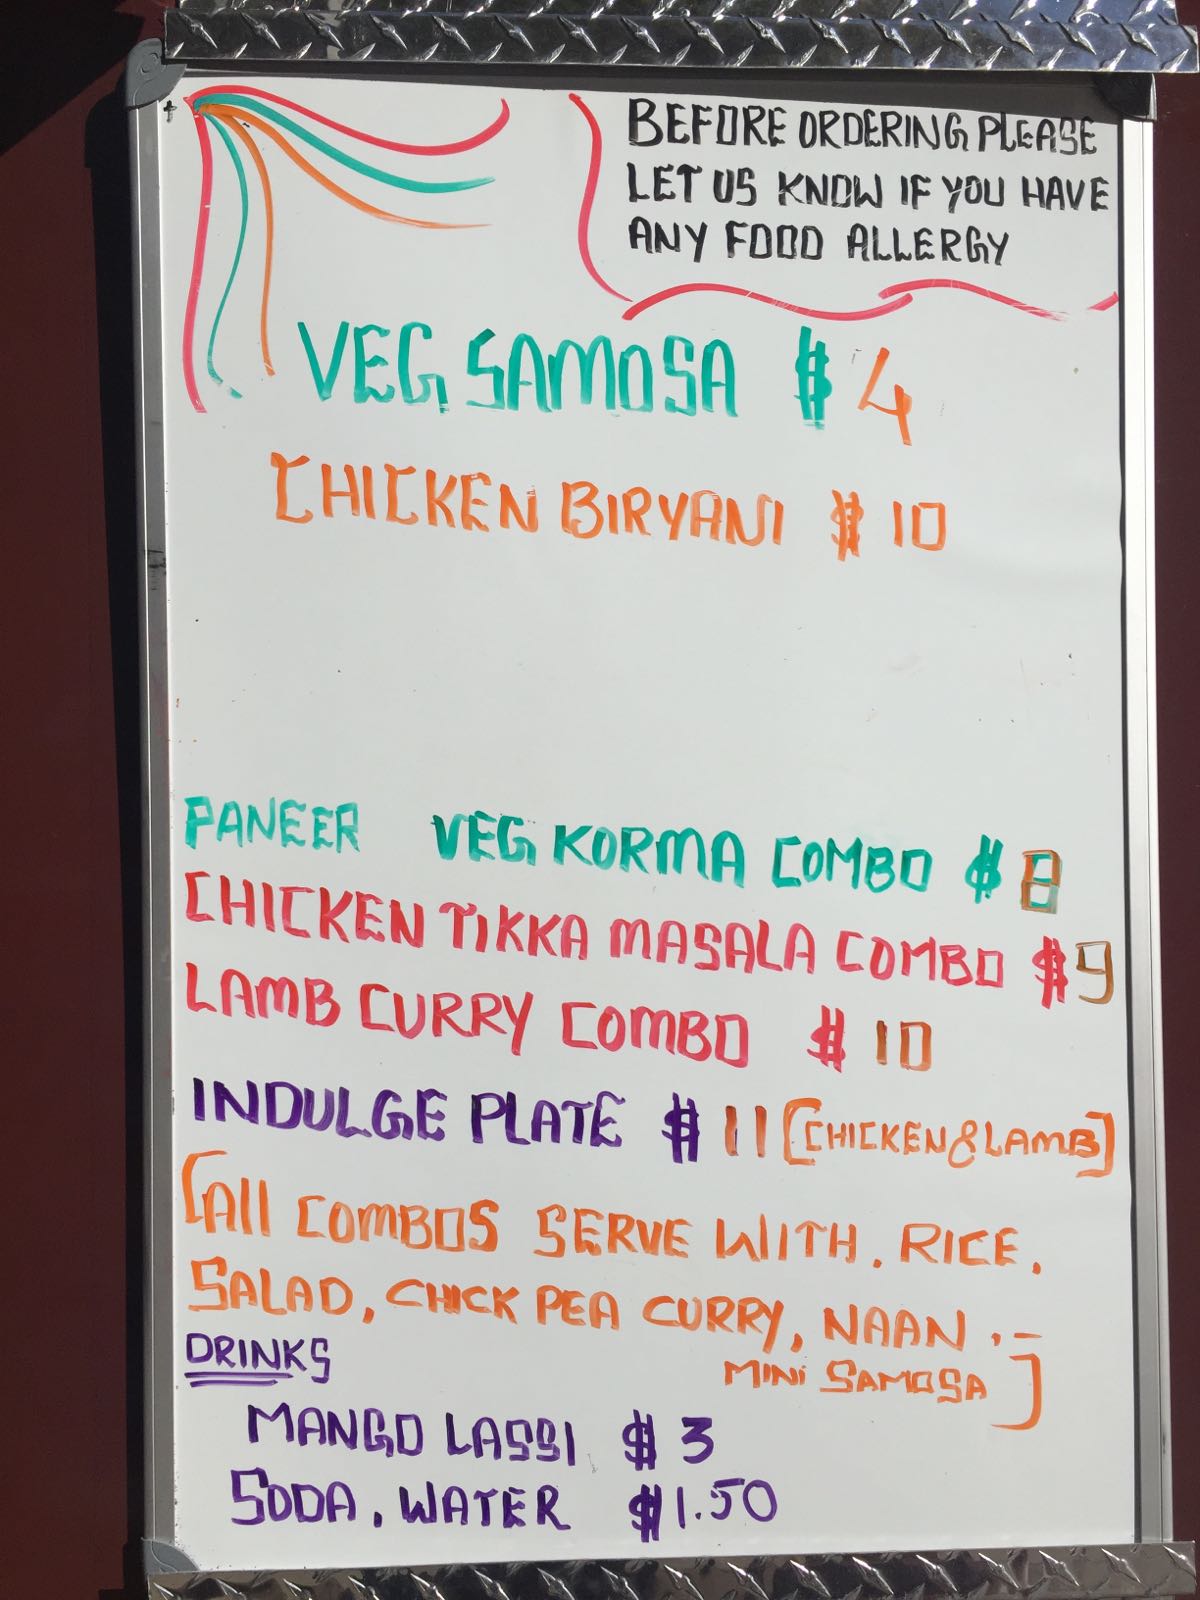 BEFORE ORDERING PLEASE
LET US KNOW IF YOU HAVE
ANY FOOD ALLERGY
VEG SAMOSA $ 4
CHICKEN BIRYANI $ 10
PANEER VEG KORMA COMBO $ 8
CHICKEN TIKKA MASALA COMBO $9
LAMB CURRY COMBO $ 10
INDULGE PLATE $ 11 [CHICKEN & LAMB]
[All COMBOS SERVE WITH. RICE.
SALAD, CHICK PEA CURRY, NAAN .-
MINI SAMOSA]
DRINKS
MANGO LASSI $ 3
SODA, WATER $1.50